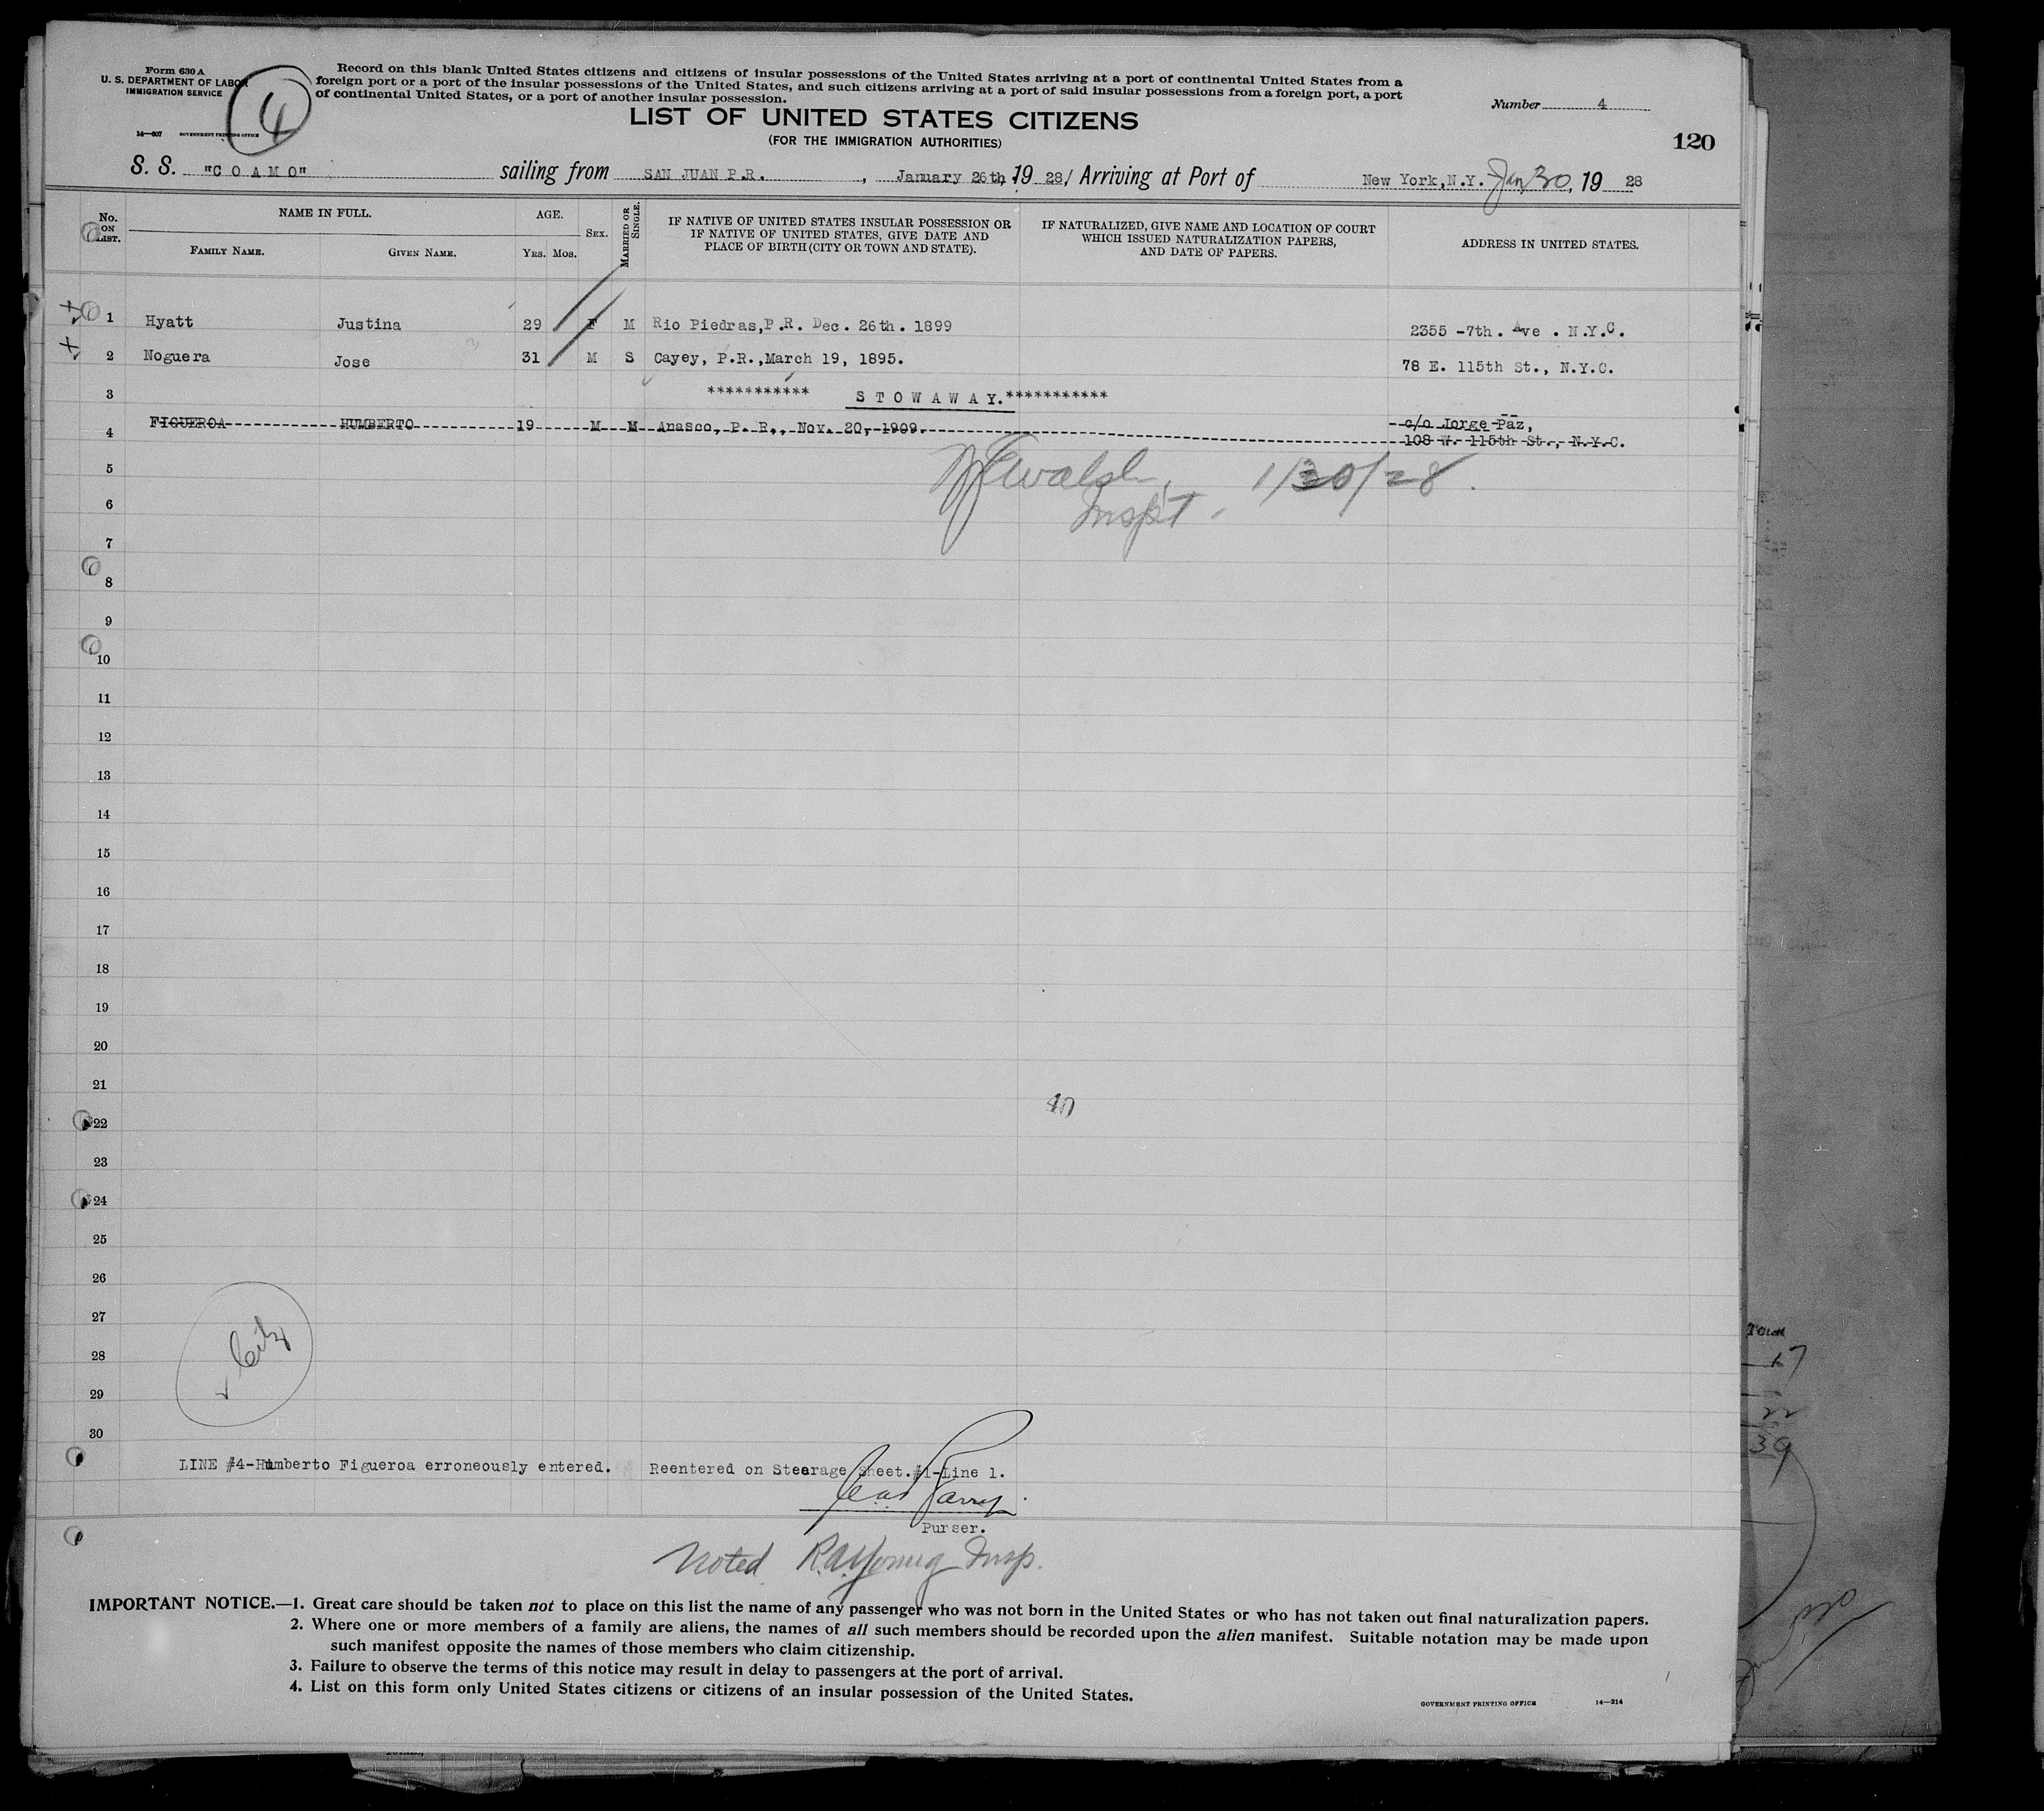 Form 630 A
U. S. DEPARTMENT OF LABOR
IMMIGRATION SERVICE
14—607 GOVERNMENT PRINTING OFFICE
4
Record on this blank United States citizens and citizens of insular possessions of the United States arriving at a port of continental United States from a
foreign port or a port of the insular possessions of the United States, and such citizens arriving at a port of said insular possessions from a foreign port, a port
of continental United States, or a port of another insular possession.
Number 4
LIST OF UNITED STATES CITIZENS
(FOR THE IMMIGRATION AUTHORITIES)
120
S. S. "C O A M O" sailing from SAN JUAN P.R. , January 26th, 19 28 / Arriving at Port of New York, N.Y. Jan 30, 19 28
No. ON LIST. NAME IN FULL. FAMILY NAME. GIVEN NAME. AGE. YRS. MOS. SEX. MARRIED OR SINGLE. IF NATIVE OF UNITED STATES INSULAR POSSESSION OR IF NATIVE OF UNITED STATES, GIVE DATE AND PLACE OF BIRTH (CITY OR TOWN AND STATE). IF NATURALIZED, GIVE NAME AND LOCATION OF COURT WHICH ISSUED NATURALIZATION PAPERS, AND DATE OF PAPERS. ADDRESS IN UNITED STATES.
1 Hyatt Justina 29 F M Rio Piedras, P.R. Dec. 26th. 1899 2355 -7th. Ave . N.Y.C.
2 Noguera Jose 31 M S Cayey, P.R., March 19, 1895. 78 E. 115th St., N.Y.C.
3 *********** S T O W A W A Y.***********
4 FIGUEROA HUMBERTO 19 M M Anasco, P. R., Nov. 20, 1909. c/o Jorge Paz,
108 W. 115th St., N.Y.C.
5 Walsh, 1/30/28.
6 Inspt.
7
8
9
10
11
12
13
14
15
16
17
18
19
20
21
40
22
23
24
25
26
27
28
29
30
Citz
LINE #4-Humberto Figueroa erroneously entered. Reentered on Steerage Sheet.#1-Line 1.
Purser.
Noted R.A. Young Insp.
IMPORTANT NOTICE.—1. Great care should be taken not to place on this list the name of any passenger who was not born in the United States or who has not taken out final naturalization papers.
2. Where one or more members of a family are aliens, the names of all such members should be recorded upon the alien manifest. Suitable notation may be made upon
such manifest opposite the names of those members who claim citizenship.
3. Failure to observe the terms of this notice may result in delay to passengers at the port of arrival.
4. List on this form only United States citizens or citizens of an insular possession of the United States.
GOVERNMENT PRINTING OFFICE 14—214
Total
17
22
39